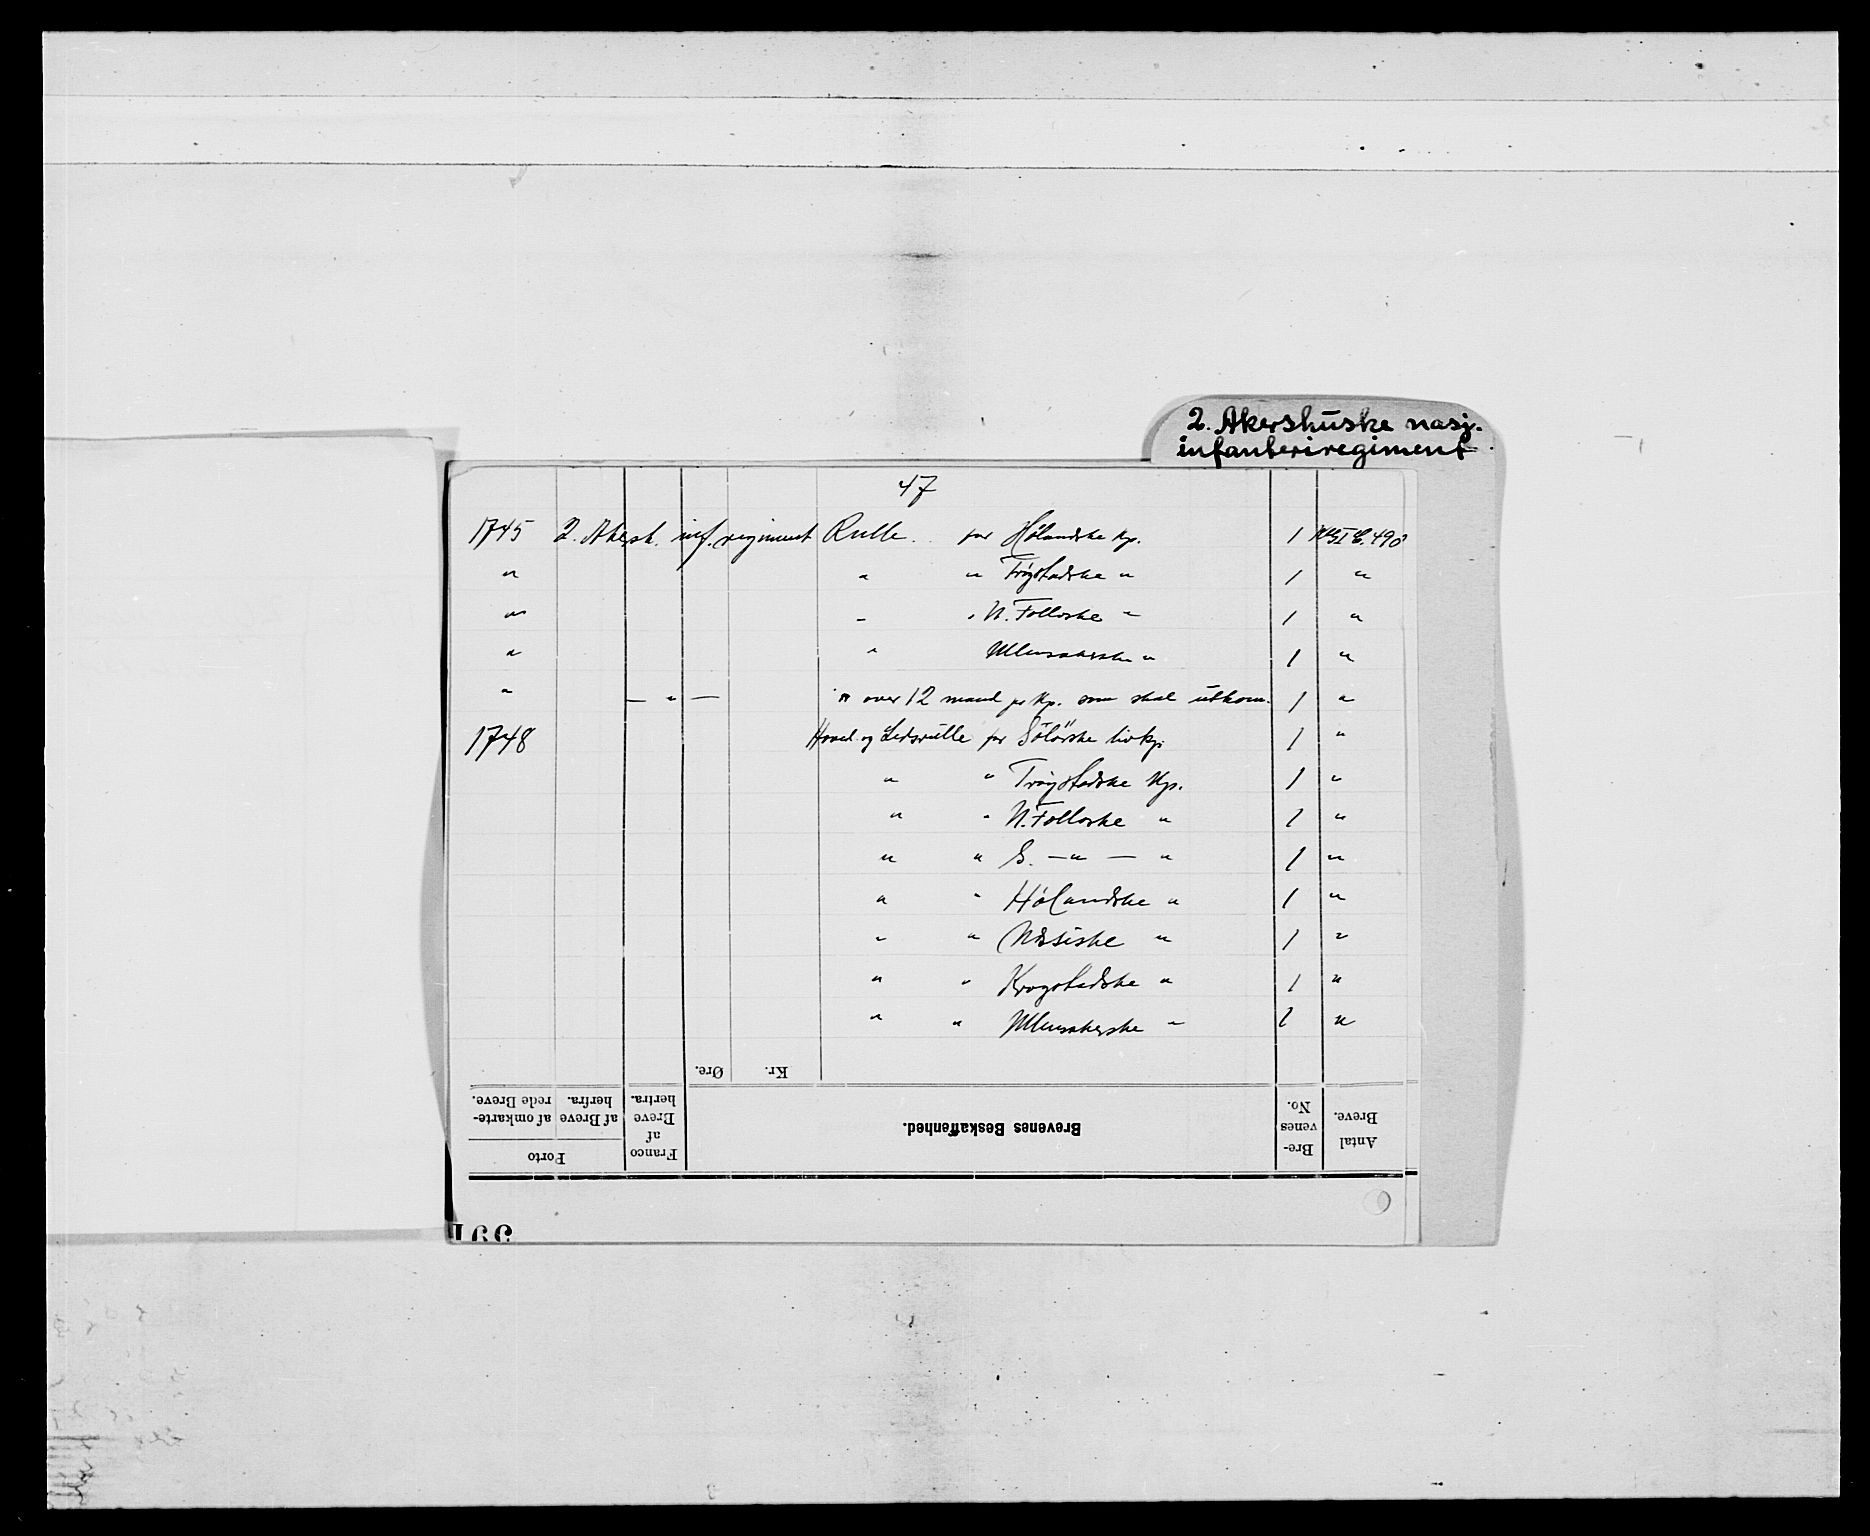 2. Akershuske nasj.
infanteriregiment
47
1745 2. Akersh. inf. regiment Rulle for Hølandske kp. 1
" " " Trøgstadske " 1 "
" " " N. Folloske " 1 "
" " Ullensakerske " 1 "
" — " — " over 12 mand pr kp. som skal utkom. 1 "
1748 Hoved og Ledsrulle for Solørske livkp. 1 "
" " Trøgstadske kp. 1 "
" " N. Folloske " 1 "
" " S. — " — " 1 "
" " Hølandske " 1 "
" " Næsiske " 1 "
" " Krogstadske " 1 "
" " Ullensakerske " 1 "
Øre. Kr.
Porto
af omkarte-
rede Breve.
af Breve
herfra.
Franco
af
Breve
herfra.
Brevenes Beskaffenhed.
Bre-
venes
No.
Antal
Breve.